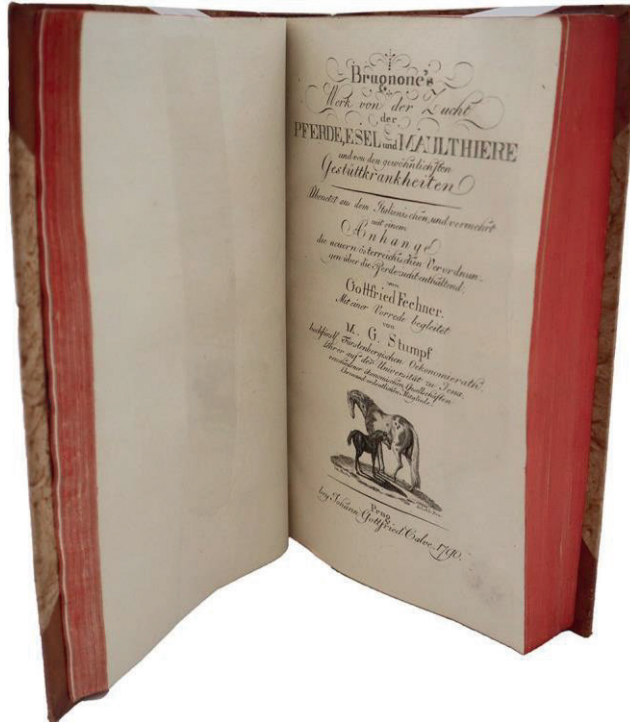 Brugnone's
Werk von der Zucht
der
PFERDE, ESEL und MAULTHIERE
und von den gewöhnlichsten
Gestüttkrankheiten
Übersetzt aus dem Italienischen, und vermehrt
mit einem
Anhange
die neuern österreichischen Verordnun-
gen über die Pferdezucht enthaltend;
von
Gottfried Fechner.
Mit einer Vorrede begleitet
von
M. G. Stumpf
hochfürstl. Fürstenbergischen Oekonomierath,
Lehrer auf der Universität zu Jena,
verschiedener ökonomischen Gesellschaften
Mitgliede.
Prag
bey Johann Gottfried Calve 1790.